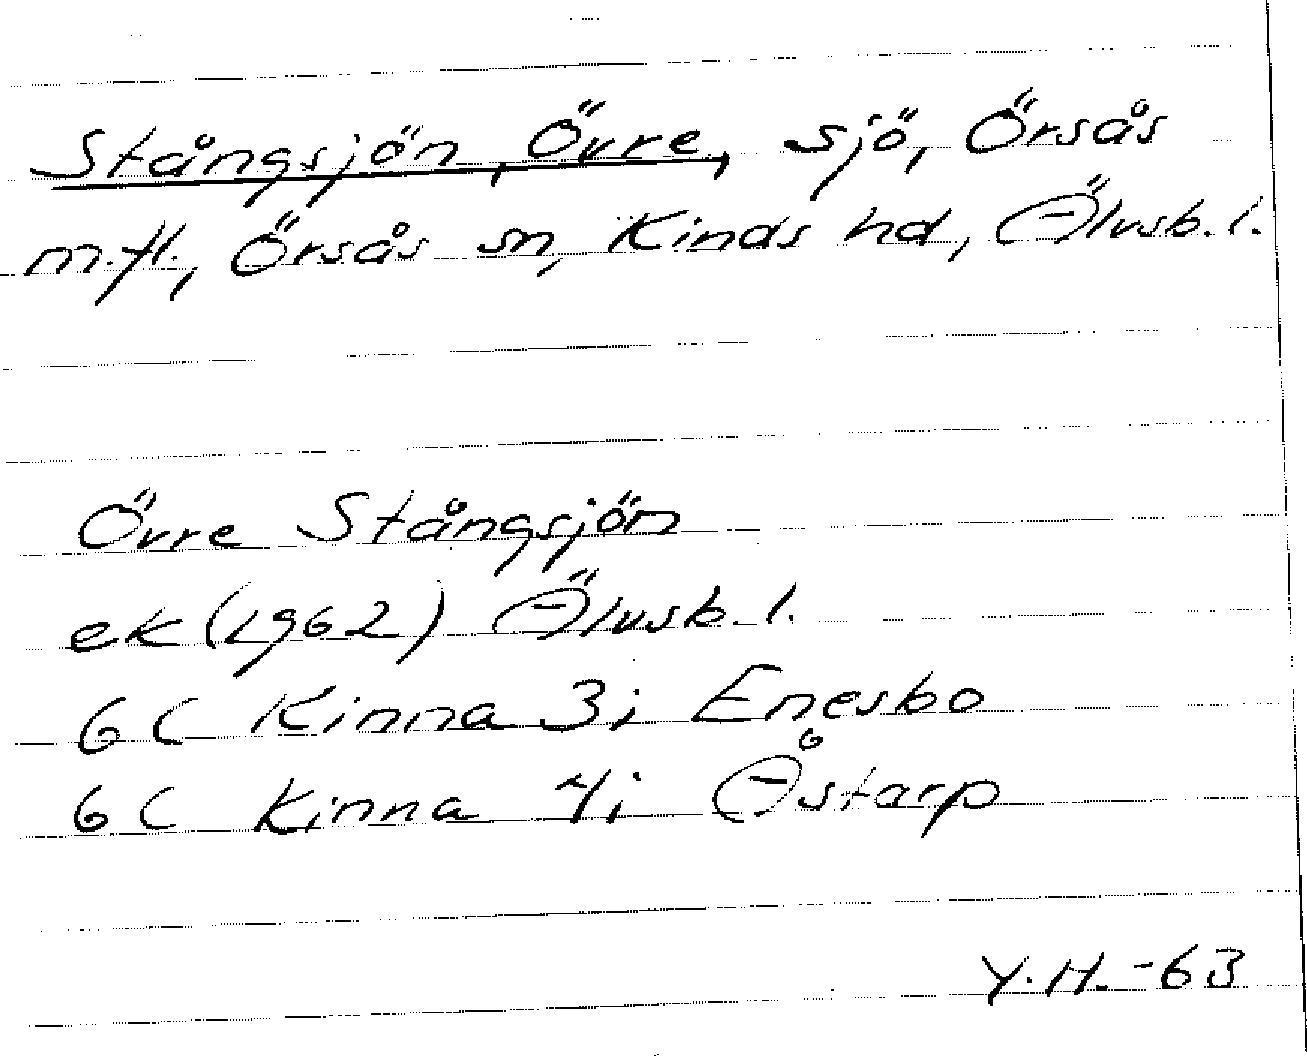 Stångsjön, Övre, sjö, Örsås
m.fl., Örsås sn, Kinds hd, Älvsb. l.
Övre Stångsjön
ek (1962) Älvsb. l.
6C Kinna 3i Enesbo
6C Kinna 4i Åstarp
Y.H. -63